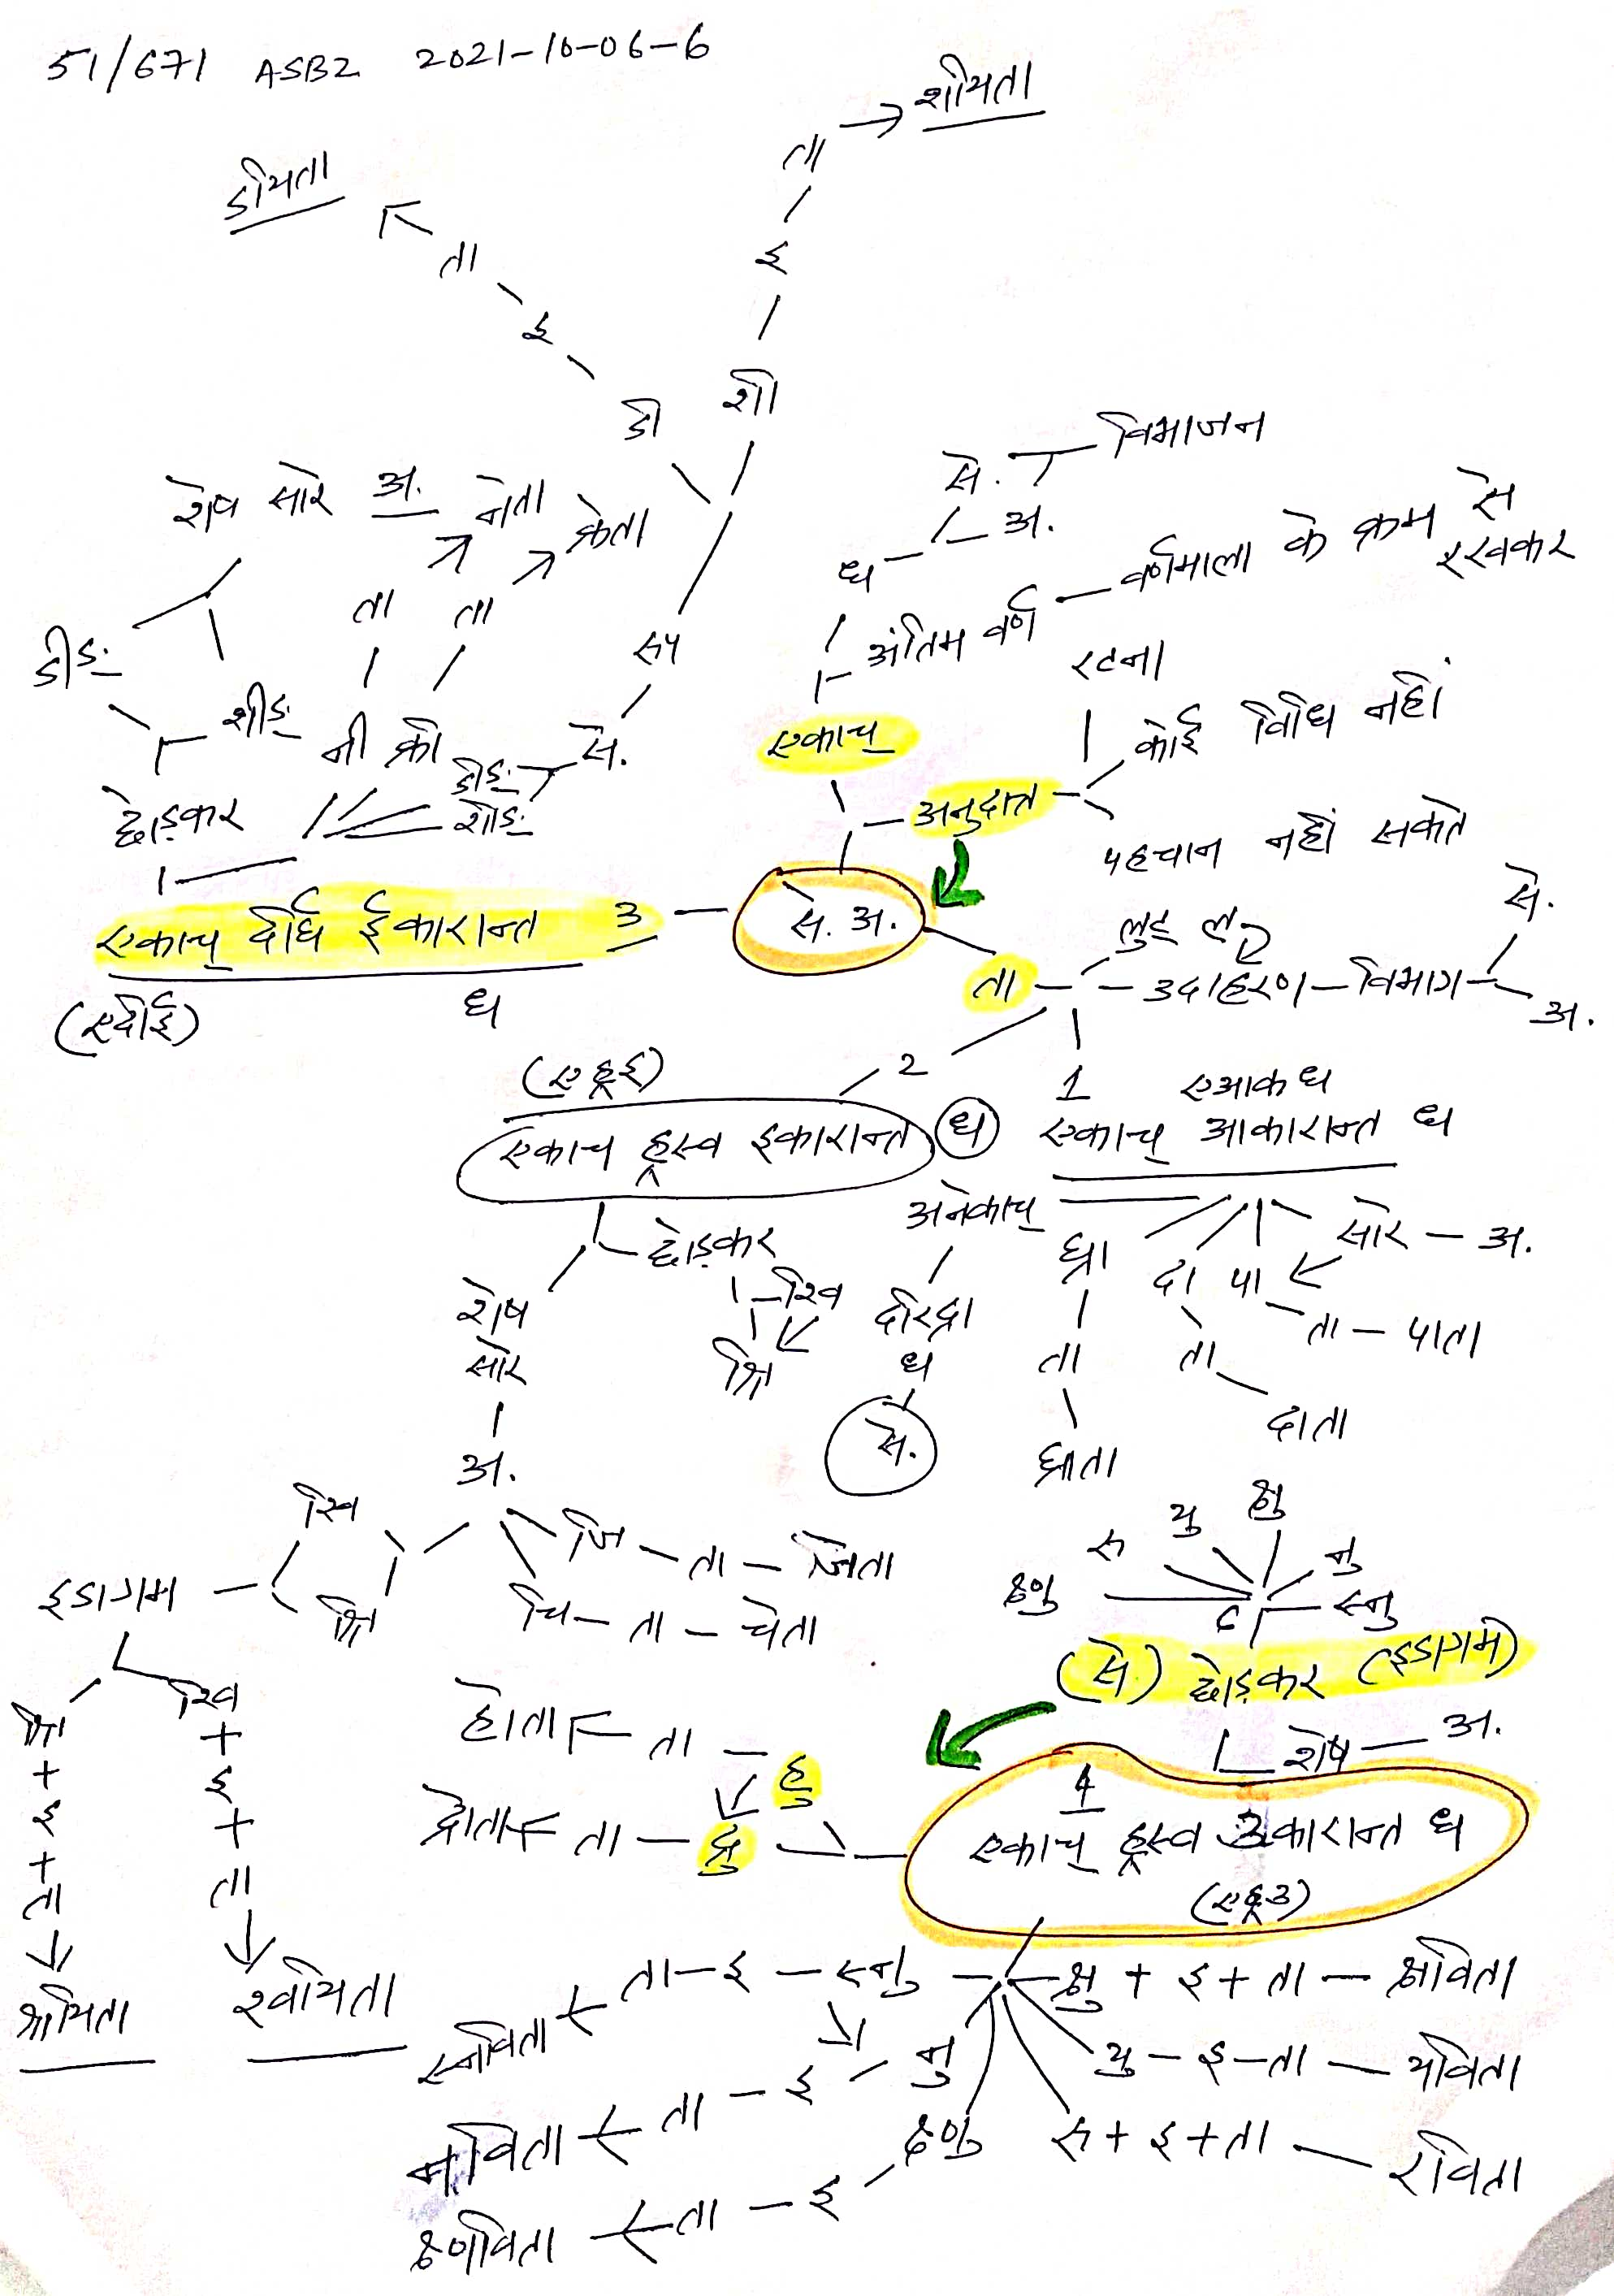 51/671 ASB2 2021-10-06-6
ता → शयिता
डयिता
ता
इ
इ
डी शी
से. विभाजन
अ.
शेष सारे अ. नेता क्रेता
ध
अंतिम वर्ण वर्णमाला के क्रम से रखकर
ता ता
डीङ् शीङ् नी क्री डीङ् शीङ् से. रूप
एकाच्
रटना
कोई विधि नहीं
अनुदात्त
पहचान नहीं सकते
छोड़कर
एकाच् दीर्घ ईकारान्त 3
ध
(एदीई)
से. अ.
ता
लुट् लृट्
उदाहरण – विभाग
से.
अ.
(एहृइ)
2
1 एआकध
एकाच ह्रस्व इकारान्त ध
एकाच् आकारान्त ध
शेष सारे अ.
छोड़कर
श्वि
श्रि
अनेकाच्
दरिद्रा
ध
से.
घ्रा
ता
घ्राता
दा
ता
दाता
पा
ता – पाता
सारे – अ.
श्वि
श्रि
इडागम
जि – ता – जेता
चि – ता – चेता
क्ष्णु रु यु क्षु नु स्नु
6
(से) छोड़कर (इडागम)
शेष – अ.
4
एकाच् ह्रस्व उकारान्त ध
(एहृउ)
होता ता – हु
द्रोता ता – द्रु
श्रि + इ + ता
श्रयिता
श्वि + इ + ता
श्वयिता
स्नविता ता – इ – स्नु
क्षु + इ + ता – क्षविता
नविता ता – इ – नु
यु – इ – ता – यविता
क्ष्णविता ता – इ क्ष्णु
रु + इ + ता – रविता